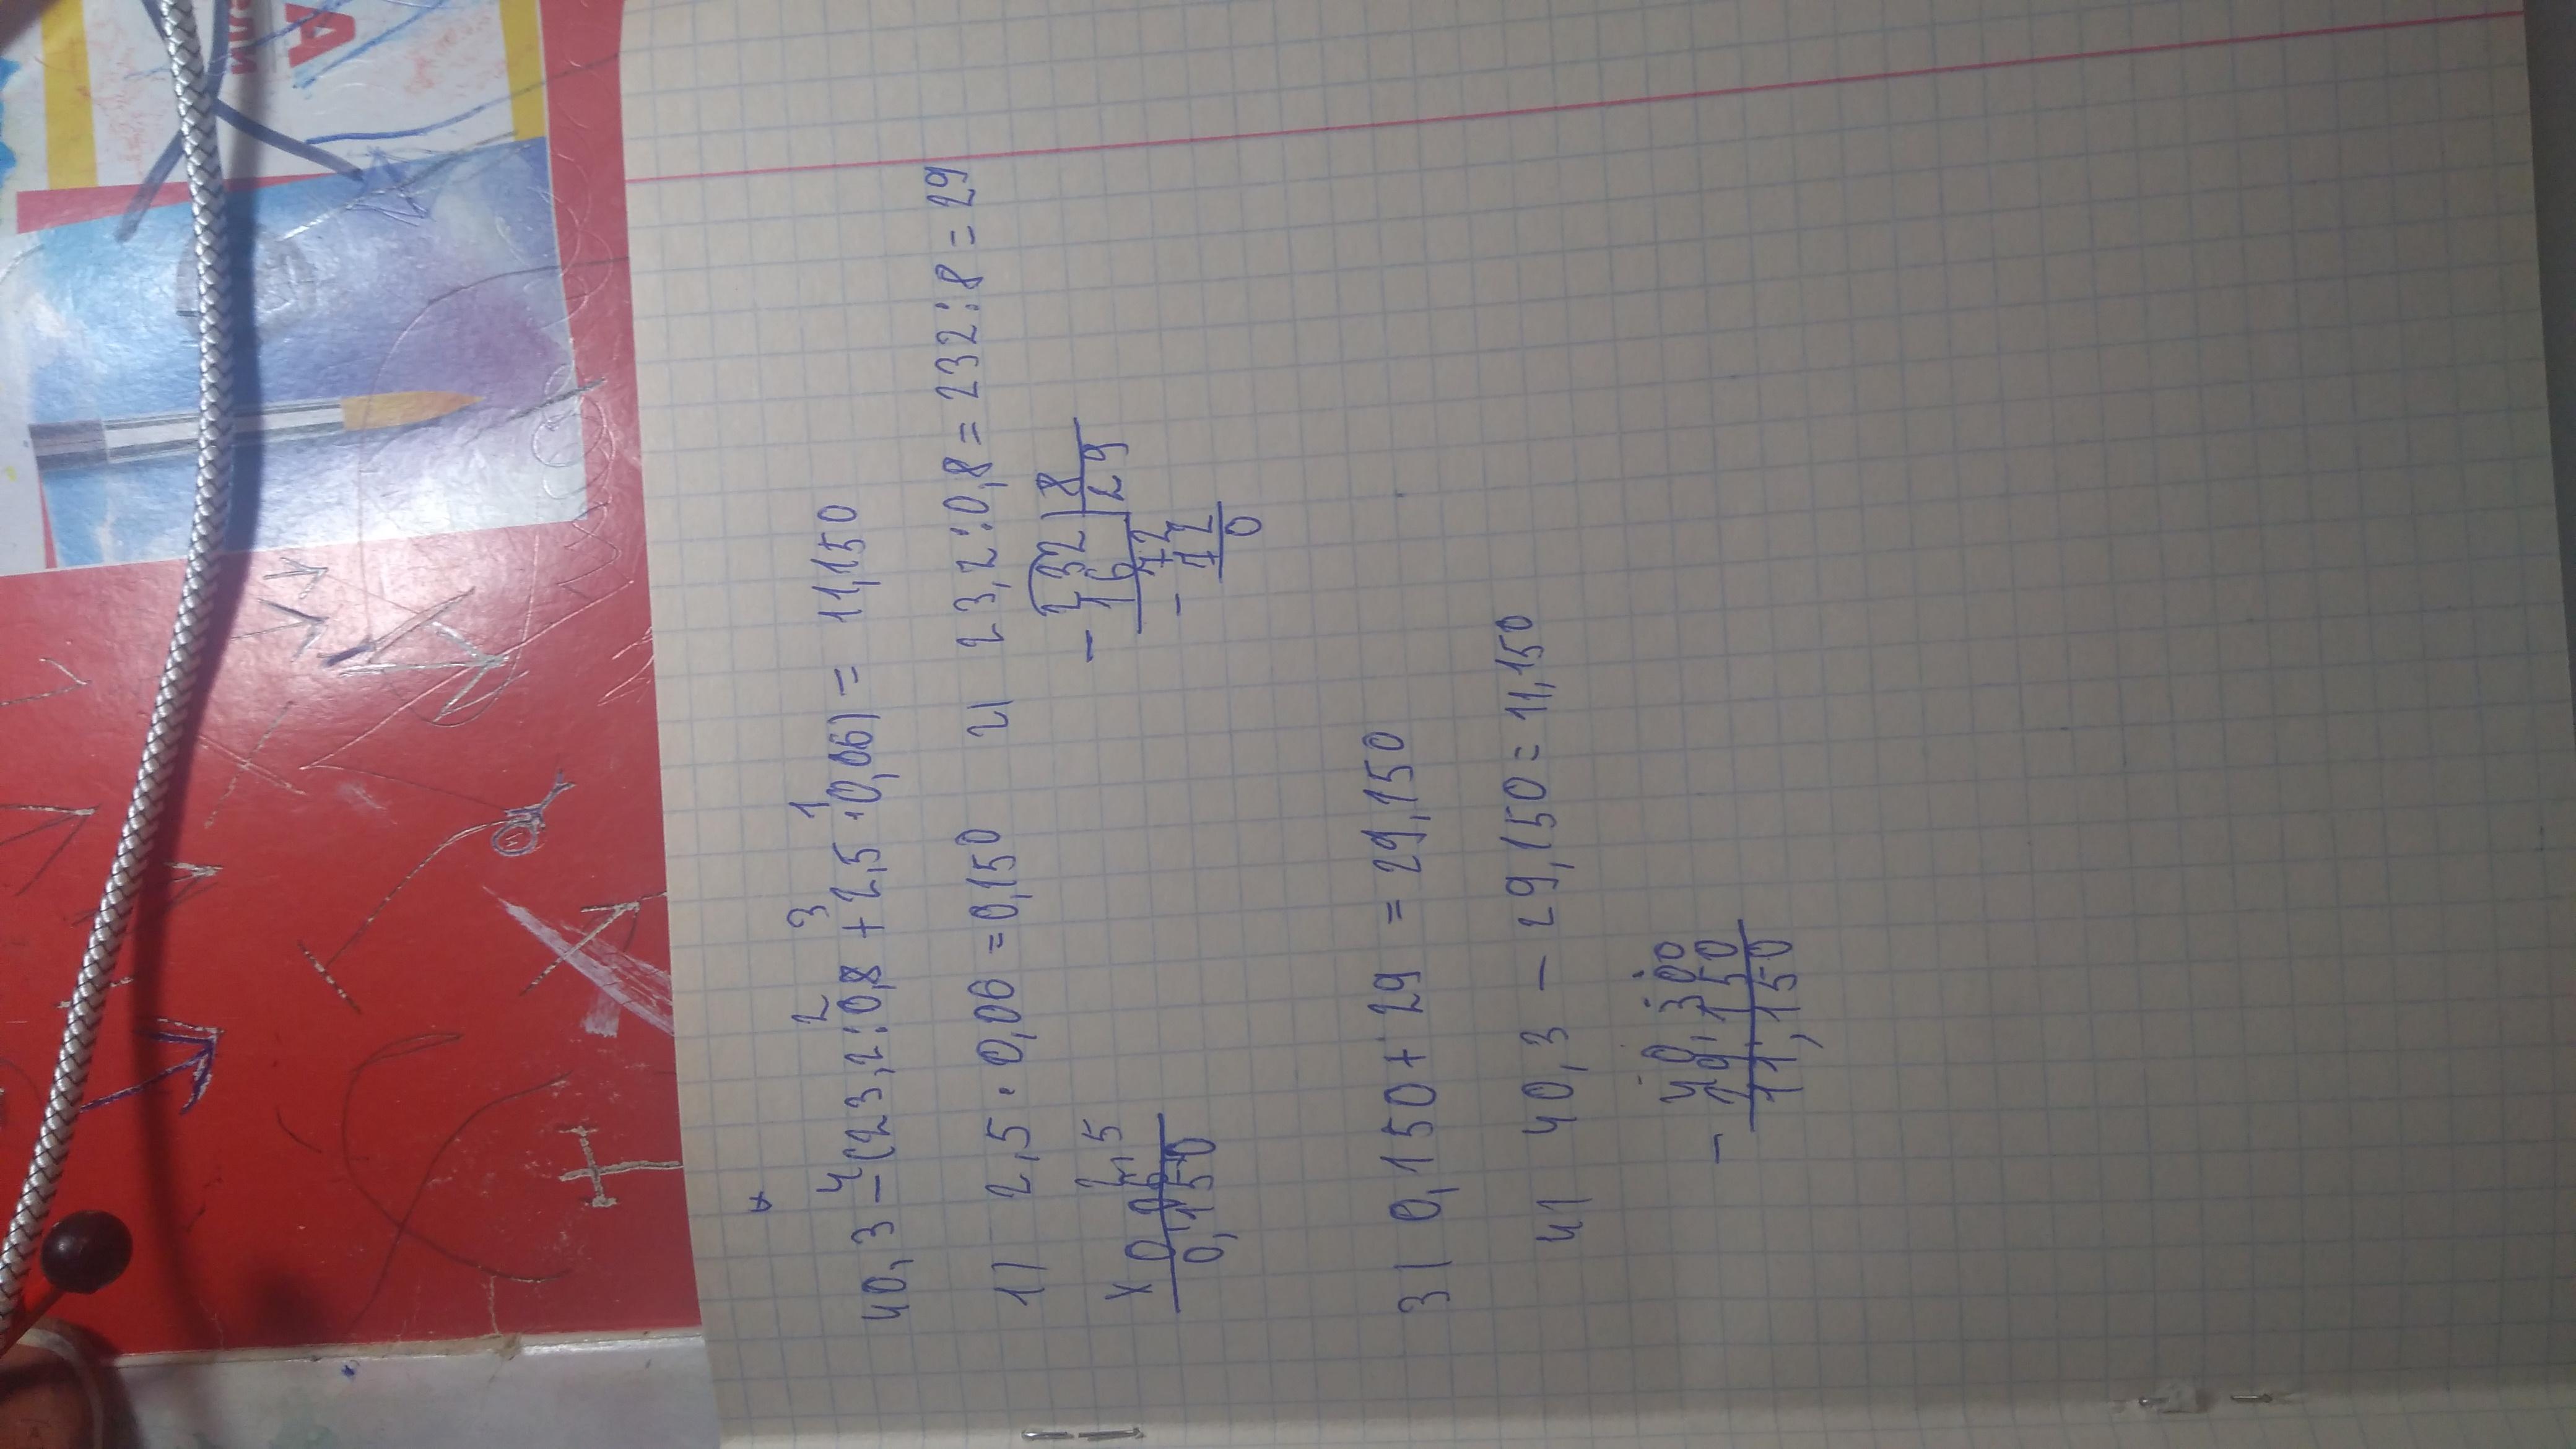 4 3 2 1
40,3-(23,2:0,8+2,5·0,06)= 11,150
1) 2,5·0,06=0,150 2) 23,2:0,8=232:8=29
2,5
× 0,06
0,150
- 232 | 8
16 29
- 72
72
0
3) 0,150+29=29,150
4) 40,3-29,150=11,150
- 40,300
29,150
11,150